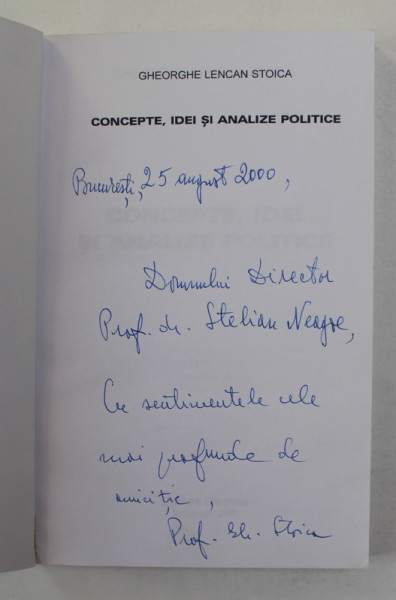 GHEORGHE LENCAN STOICA
CONCEPTE, IDEI ȘI ANALIZE POLITICE
București, 25 august 2000,
Domnului Director
Prof. dr. Stelian Neagoe,
Cu sentimentele cele
mai profunde de
amiciție,
Prof. Gh. Stoica